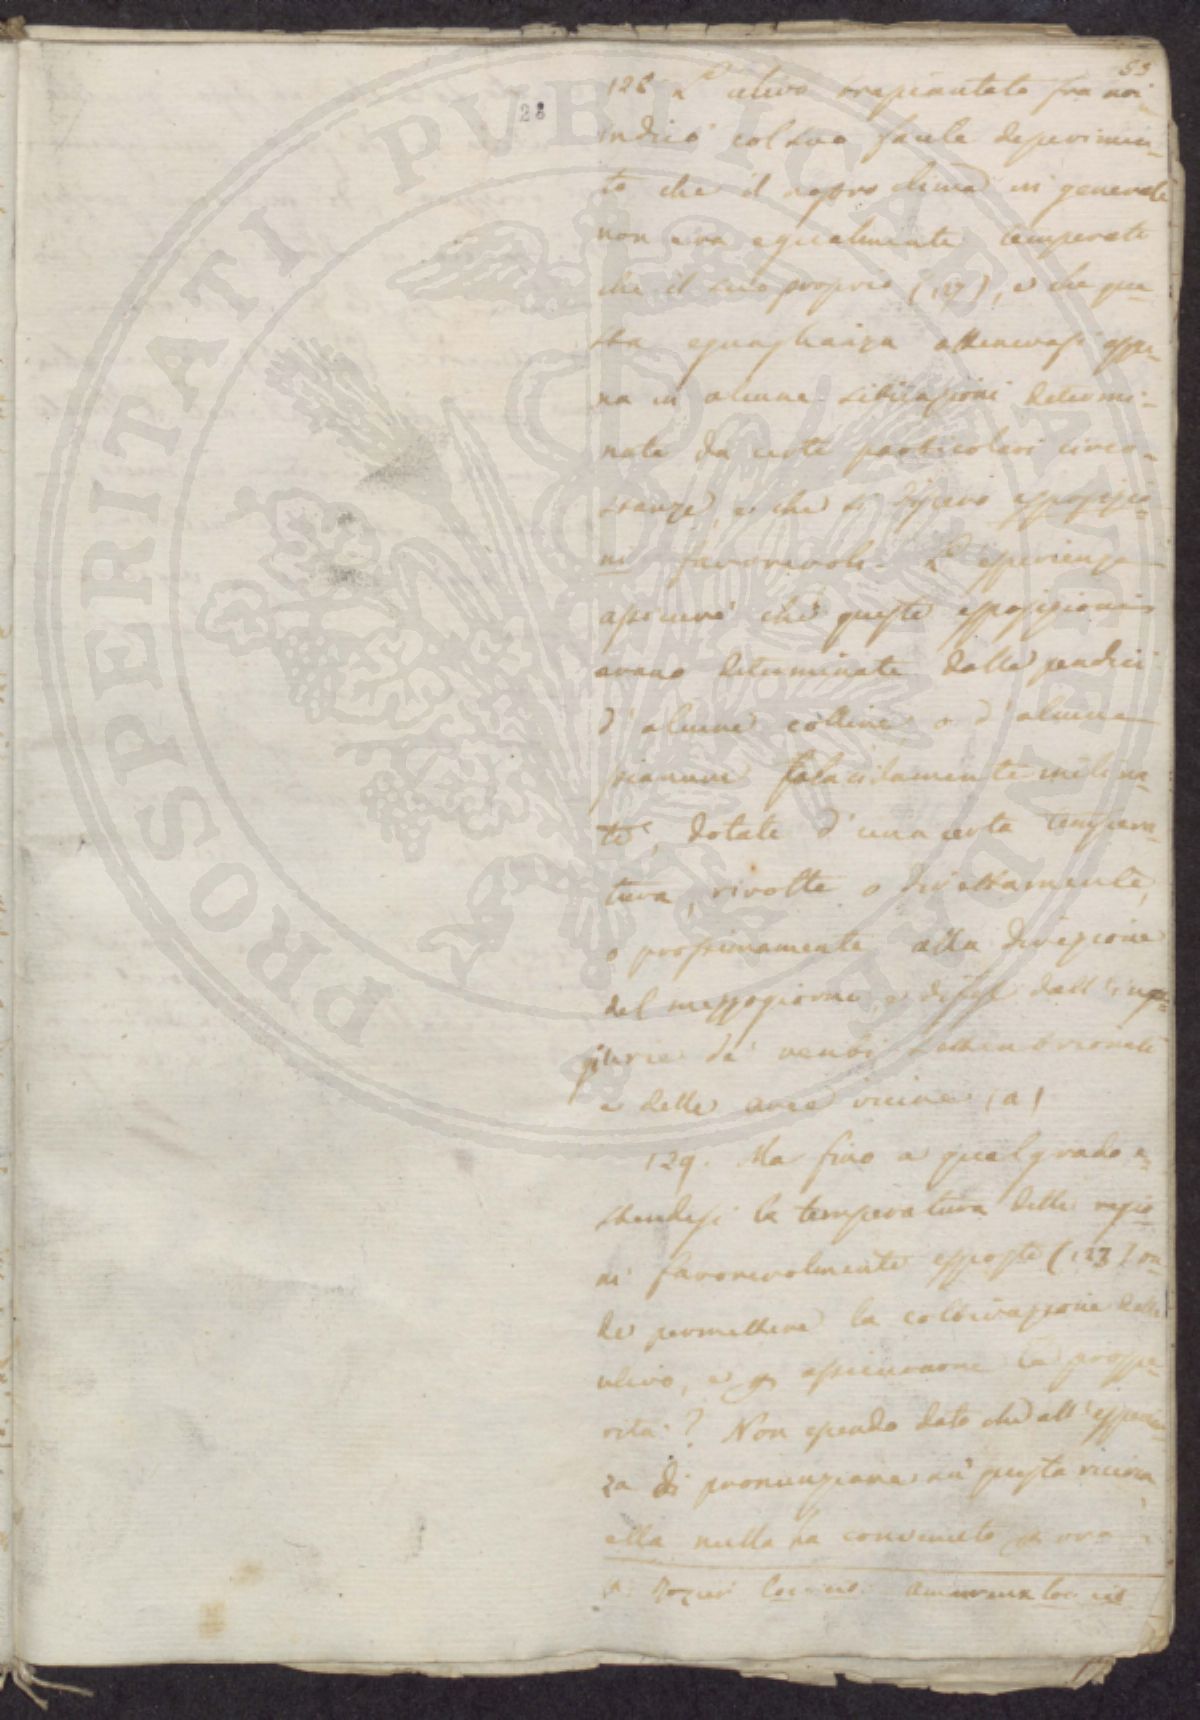 55
28
128 L'ulivo trapiantato fra noi
indicò col suo facile deperimen-
to che il nostro clima in generale
non era egualmente temperato
che il suo proprio (127), e che que-
sta eguaglianza ottenevasi appe-
na in alcune situazioni determi-
nate da certe particolari circo-
stanze, e che si dissero esposizio-
ni favorevoli. L'esperienza
assicurò che queste esposizioni
erano determinate dalle pendici
d'alcune colline, o d'alcune
pianure placidamente inclina-
te, dotate d'una certa tempera-
tura, rivolte o direttamente,
o prossimamente alla direzione
del mezzogiorno, e difese dall'in-
giurie de' venti settentrionali
e delle arie vicine (a)
129. Ma fino a qual grado e-
stendesi la temperatura delle regio-
ni favorevolmente esposte (123) on-
de permettere la coltivazione dell'
ulivo, e assicurarne la prospe-
rità? Non essendo dato che all'esperien-
za di pronunziare su questa ricerca,
ella nulla ha convenuto ora
a. Rozier loc. cit. Amoreux loc. cit.
PROSPERITATI PUBLICAE AUGENDAE